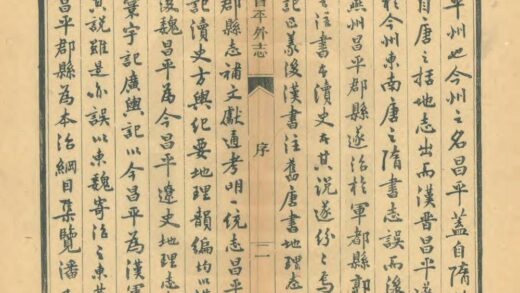 平州也今州之名昌平蓋自隋
自唐之括地志出而漢晉昌平遂
於今州東南唐之隋書志誤而後
燕州昌平郡縣遂治於軍都縣郭
之注書者讀史者其說遂紛之焉
記正義後漢書注舊唐書地理志
昌平外志
序
二
郡縣志補文獻通考明一統志昌平
記讀史方輿紀要地理韻編均以漢
後魏昌平為今昌平遼史地理志
寰宇記廣輿記以今昌平為漢軍
說雖是亦誤以東魏寄治之東燕
昌平郡縣為本治綱目集覽潘